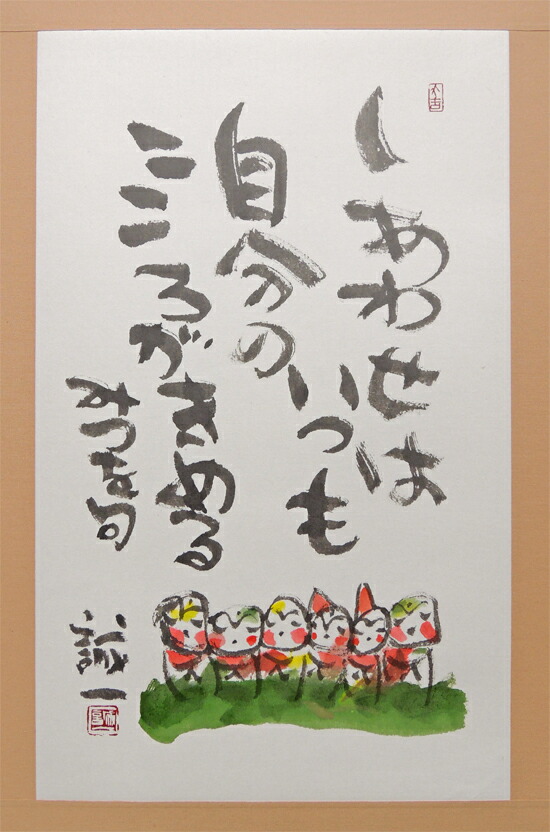 しあわせは
いつも
自分の
こころがきめる
みつを の句
誠一